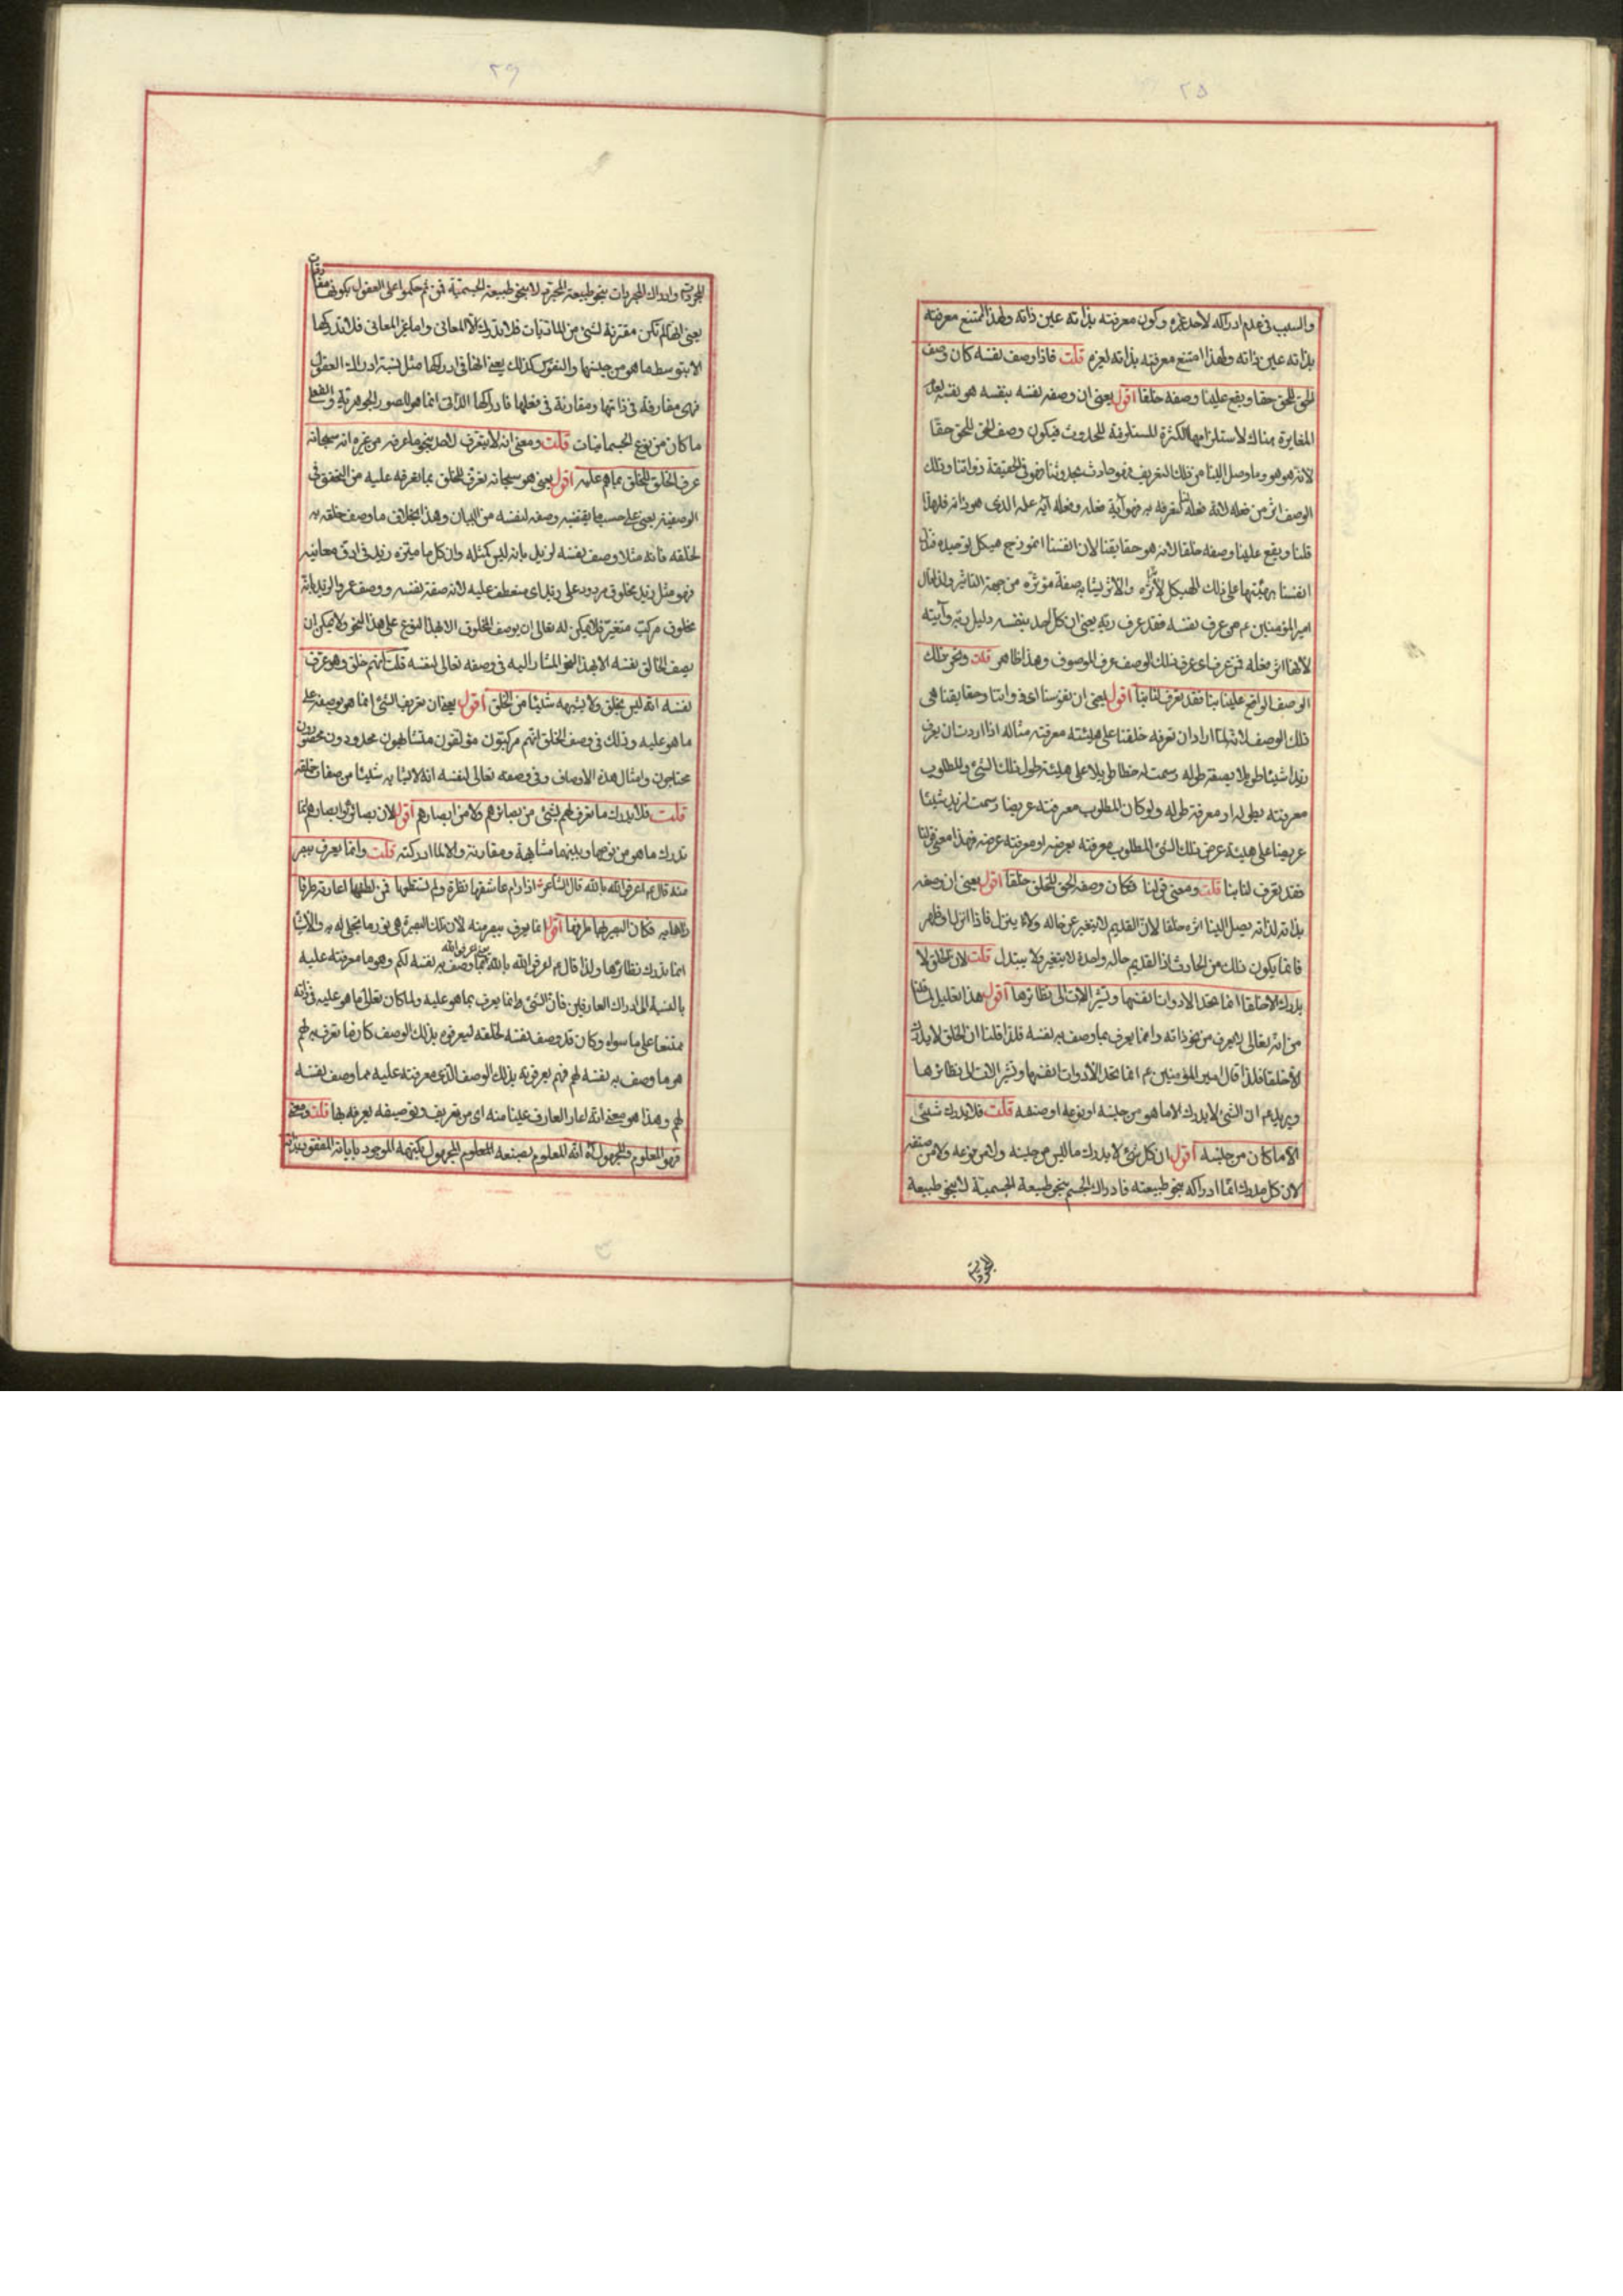 ٢٥
والسبب فى عدم ادراكه لاحد غيره وكون معرفته بذاته عين ذاته ولهذا امتنع معرفته
بذاته عين ذاته ولهذا امتنع معرفته بذاته لغيره قلت فاذا وصف نفسه كان وصف
الحق للحق حقا ويقع علينا وصفه خلقا اقول يعنى ان وصفه نفسه بنفسه هو نفسه لعدم
المغايرة هناك لاستلزامها الكثرة المستلزمة للحدوث فيكون وصف الحق للحق حقا
لانه هو هو وما وصل الينا من ذلك التعريف فهو حادث بحدوثنا فهو فى الحقيقة ذواتنا وذلك
الوصف اثر من فعله لانه فعله لنعرفه به فهو آية فعله وفعله آية علمه الذى هو ذاته فلهذا
قلنا ويقع علينا وصفه خلقا لانه هو حقايقنا لان انفسنا انموذج هيكل توحيده فدل
انفسنا بهيئتها على ذلك الهيكل لانها اثره والاثر يشابه صفة مؤثره من جهة التاثير ولذا قال
امير المؤمنين ع من عرف نفسه فقد عرف ربه يعنى ان كل احد بنفسه دليل ربه وآيته
لانها اثر فعله فمن عرف اى عرف ذلك الوصف عرف الموصوف وهذا ظاهر قلت ونحن ذلك
الوصف الواقع علينا بنا فقد تعرف لنا بنا اقول يعنى ان نفوسنا اى ذواتنا وحقايقنا هى
ذلك الوصف لانه لما اراد ان نعرفه خلقنا على هيئته معرفته مثاله اذا اردت ان يعرف
زيد شيئا طويلا بصفة طوله رسمت له خطا طويلا على هيئة طول ذلك الشئ والمطلوب
معرفته بطوله او معرفة طوله ولو كان المطلوب معرفته عريضا رسمت لزيد شيئا
عريضا على هيئة عرض ذلك الشئ المطلوب معرفته بعرضه او معرفة عرضه فهذا معنى قولنا
فقد تعرف لنا بنا قلت ومعنى قولنا فكان وصف الحق للخلق خلقا اقول يعنى ان وصفه
بذاته لذاته يصل الينا اثره خلقا لان القديم لا يتغير عن حاله ولا ينزل فاذا انزل او ظهر
فانما يكون ذلك من الحادث اذ القديم حاله واحدة لا يتغير ولا يتبدل قلت لان الخلق لا
يدرك الا خلقا انما تحد الادوات انفسها وتشير الآلات الى نظائرها اقول هذا تعليل لما قلنا
من انه تعالى لا يعرف من نحو ذاته وانما يعرف بما وصف به نفسه فلذا قلنا ان الخلق لا يدرك
الا خلقا فلذا قال امير المؤمنين ع انما تحد الادوات انفسها وتشير الآلات الى نظائرها
ويريد ع ان الشئ لا يدرك الا ما هو من جنسه او نوعه او صنفه قلت فلا يدرك شئ
الا ما كان من جنسه اقول ان كل شئ لا يدرك ما ليس من جنسه ولا من نوعه ولا من صنفه
لان كل مدرك انما ادراكه بنحو طبيعته فادراك الجسم بنحو طبيعة الجسمية لا بنحو طبيعة
المجردية
٢٦
المجردية وادراك المجردات بنحو طبيعة المجردية لا بنحو طبيعة الجسمية فمن ثم حكموا على العقول بكونها مفارقات
يعنى انها لم تكن مقترنة لشئ من الماديات فلا تدرك الا المعانى واما غير المعانى فلا تدركها
الا بتوسط ما هو من جنسها والنفوس كذلك يعنى انها فى ادراكها مثل نسبة ادراك العقول
فهى مفارقة فى ذاتها ومقارنة فى فعلها فادراكها الذاتى انما هو للصور الجوهرية والفعلى
ما كان من نوع الجسمانيات قلت ومعنى انه لا يتعرف لاحد بنحو ما عرفه من غيره انه سبحانه
عرف الخلق للخلق بما هم عليه اقول يعنى هو سبحانه تعرف للخلق بما تعرفه عليه من التحقق فى
الوصفية يعنى على حسب ما يقتضيه وصفه لنفسه من البيان وهذا بخلاف ما وصف خلقه به
لخلقه فانه مثلا وصف نفسه لزيد بانه ليس كمثله وان كل ما ميزه زيد فى ادق معانيه
فهو مثل زيد مخلوق مردود على زيد اى منعطف عليه لانه صفة نفسه ووصف عمرو لزيد بانه
مخلوق مركب متغير فلا يمكن له تعالى ان يوصف المخلوق الا بهذا النوع على هذا النحو ولا يمكن ان
يصف الخالق نفسه الا بهذا النحو المشار اليه فى وصفه تعالى لنفسه قلت انهم خلق وهو عرف
نفسه انه ليس بخلق ولا يشبهه شيئا من الخلق اقول يعنى ان تعريف الشئ انما هو توصيفه على
ما هو عليه وذلك فى وصف الخلق انهم مركبون مؤلفون متشابهون محدودون محصورون
محتاجون وامثال هذه الاوصاف وفى وصفه تعالى لنفسه انه لا يشابه شيئا من صفات خلقه
قلت فلا يدرك ما تعرف لهم بشئ من بصائرهم ولا من ابصارهم اقول لان بصائرهم وابصارهم انما
تدرك ما هو من نوعها وبينهما مشابهة ومقارنة والا لما ادركته قلت وانما يعرف ببصر
منه قال ع اعرفوا الله بالله قال الشاعر اذا رام عاشقها نظرة ولم يستطعها فمن لطفها اعارته طرفا
راها به فكان البصير لها طرفها اقول انما يعرف ببصر منه لان تلك البصيرة هى نور ما تجلى له به والاشياء
انما تدرك نظائرها ولذا قال ع اعرفوا الله بالله يعنى اعرفوا الله بما وصف به نفسه لكم وهو ما معرفته عليه
بالنسبة الى ادراك العارفين فان الشئ انما يعرف بما هو عليه ولما كان تعالى ما هو عليه فى ذاته
ممتنعا على ما سواه وكان قد وصف نفسه لخلقه ليعرفوه بذلك الوصف كان ما تعرف به لهم
هو ما وصف به نفسه لهم فهم يعرفونه بذلك الوصف الذى معرفته عليه مما وصف نفسه
لهم وهذا هو معنى انه اعار العارف عينا منه اى من تعريف وتوصيفه يعرفه بها قلت ومعنى
فهو المعلوم والمجهول انه المعلوم بصنعه المعلوم المجهول بكنهه الموجود باياته المفقود بذاته